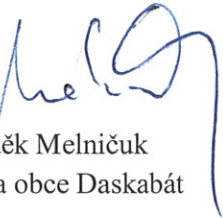 něk Melničuk
a obce Daskabát